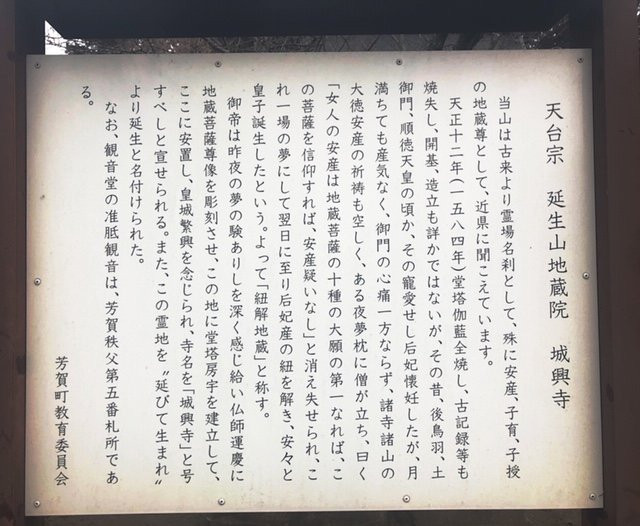 天台宗　延生山地蔵院　城興寺
当山は古来より霊場名刹として、殊に安産、子育、子授
の地蔵尊として、近県に聞こえています。
天正十二年(一五八四年)堂塔伽藍全焼し、古記録等も
焼失し、開基、造立も詳かではないが、その昔、後鳥羽、土
御門、順徳天皇の頃か、その寵愛せし后妃懐妊したが、月
満ちても産気なく、御門の心痛一方ならず、諸寺諸山の
大徳安産の祈祷も空しく、ある夜夢枕に僧が立ち、曰く
「女人の安産は地蔵菩薩の十種の大願の第一なれば、こ
の菩薩を信仰すれば、安産疑いなし」と消え失せられ、こ
れ一場の夢にして翌日に至り后妃産の紐を解き、安々と
皇子誕生したという。よって「紐解地蔵」と称す。
御帝は昨夜の夢の験ありしを深く感じ給い仏師運慶に
地蔵菩薩尊像を彫刻させ、この地に堂塔房宇を建立して、
ここに安置し、皇城繁興を念じられ、寺名を「城興寺」と号
すべしと宣せられる。また、この霊地を〝延びて生まれ〟
より延生と名付けられた。
なお、観音堂の准胝観音は、芳賀秩父第五番札所であ
る。
芳賀町教育委員会